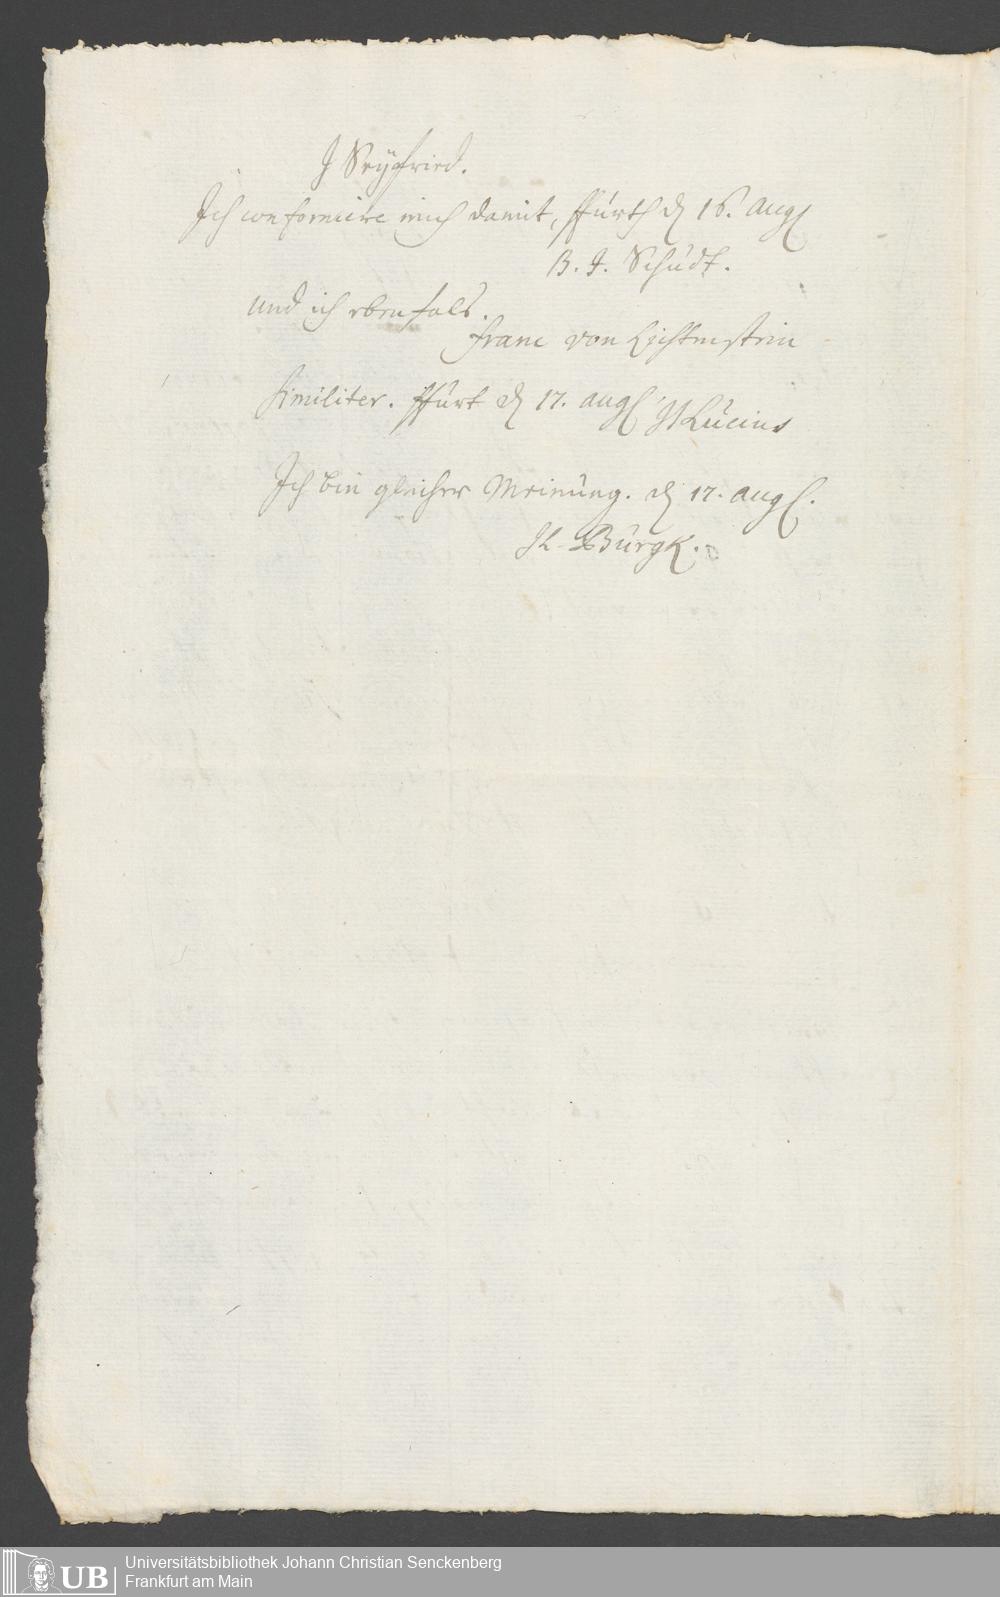 J Seÿfried.
Ich conformire mich damit, ffurth d 16. Aug
B. J. Schudt.
und ich ebenfals.
Franc von Lichtenstein
Similiter. ffurt d 17. Aug
Lucius
Ich bin gleicher Meinung. d 17. Aug.
Burgk.
Universitätsbibliothek Johann Christian Senckenberg
Frankfurt am Main
UB